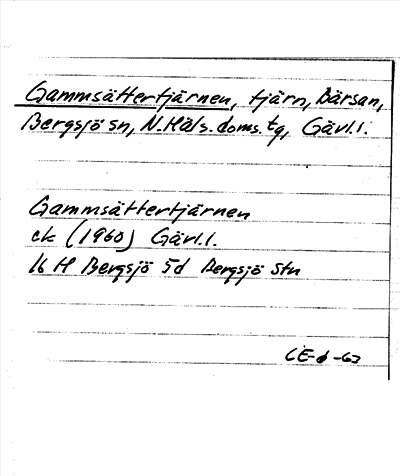 Gammsättertjärnen, tjärn, Bärsan,
Bergsjö sn, N. Häls. doms. tg, Gävl. l.
Gammsättertjärnen
ek (1960) Gävl. l.
16 H Bergsjö 5d Bergsjö Stn